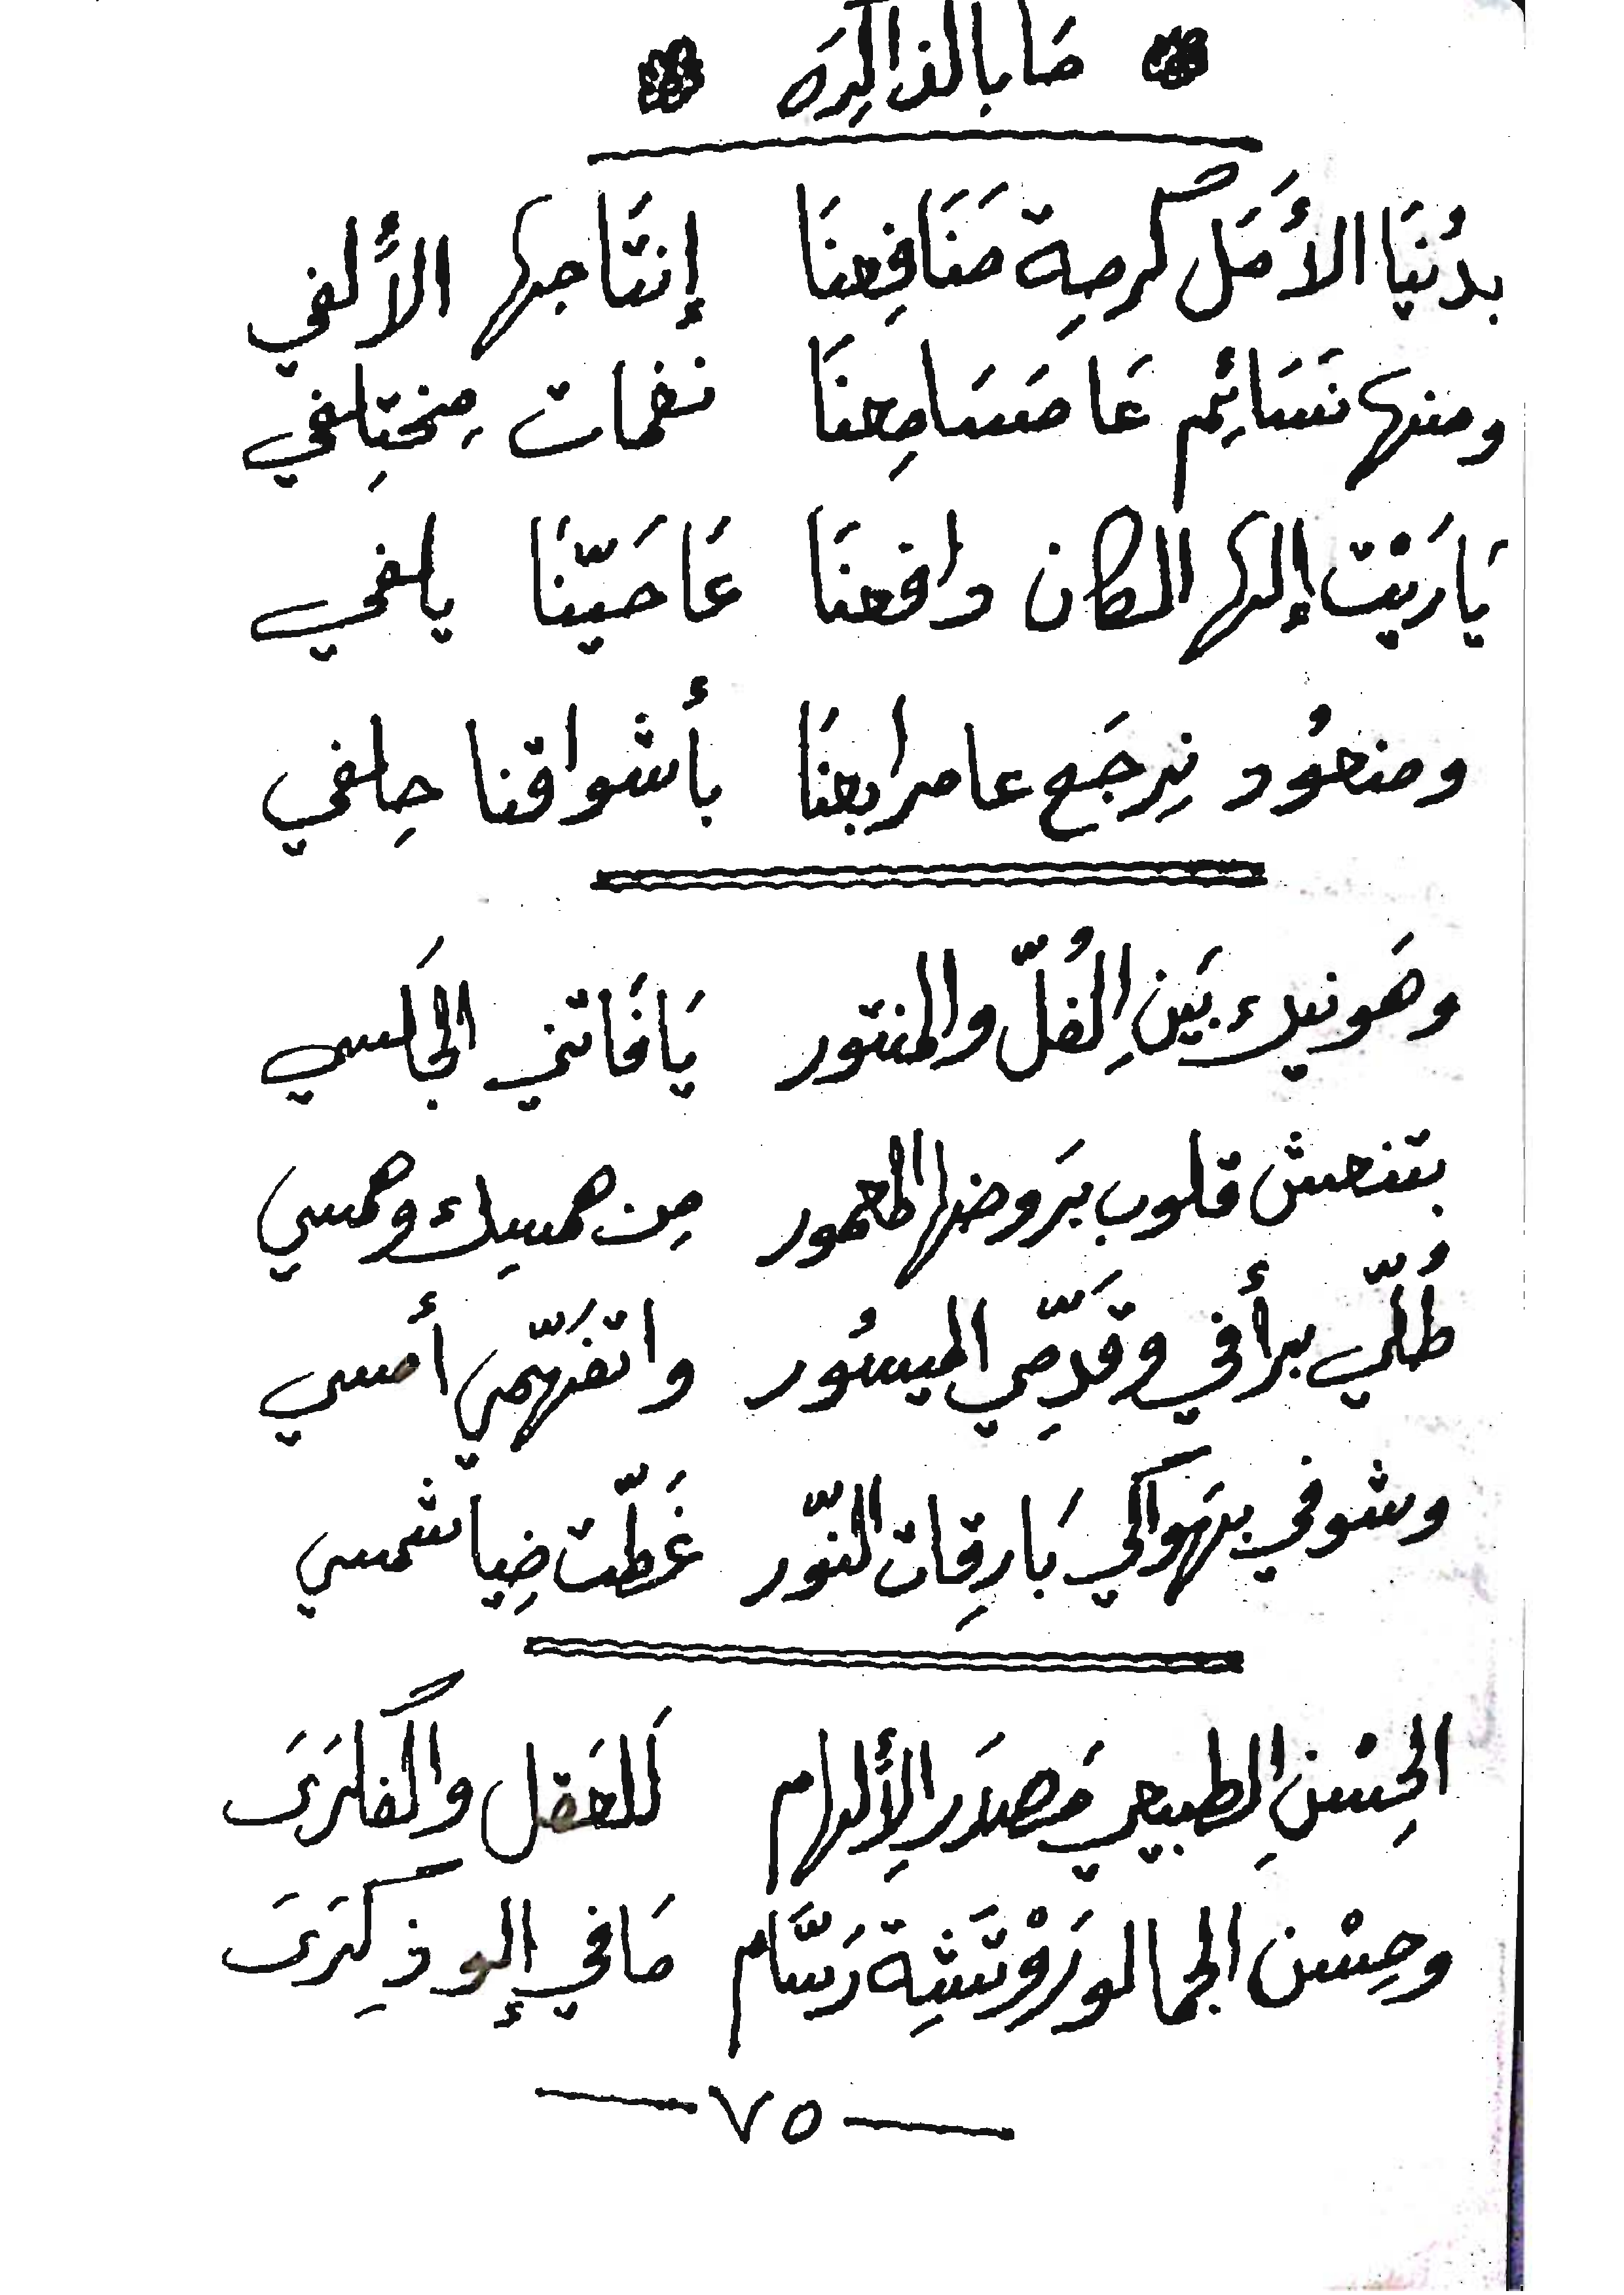 مَا بالذاكِرَه
بدُنيَا الأَمَل كَرمِة مَنَافِعنَا إنتَاجها الأَلفي
ومنها نسَائِم عَا مَسَامِعنَا نغمات مِختِلفي
يَا رَيْت إلها المكان دافعنَا عَا حَيّنَا يلفي
ومنعُود نِرجَع عا مرابعنَا بأشواقنا حِلفي
وهَونيك بَينِ الفُلّ والمنتور يَا فَاتني الجَلسي
بتنعش قلوب بَروضها المعمور مِن همسِك وهمسي
طُلّي برأفي وقَدّمِي الميسُور واتفَهّمي أمسي
وشوفي بهَواكي بَارِقات النّور غَطّت ضِيا شمسي
الحِسْنِ الطبيعي مَصدَر الِألهام لَلعقل والفكرَىَ
وحِسْن الجمال لو زَوْتَشِة رَسَّام مَا في إلو ذكِرَىَ
— ٧٥ —